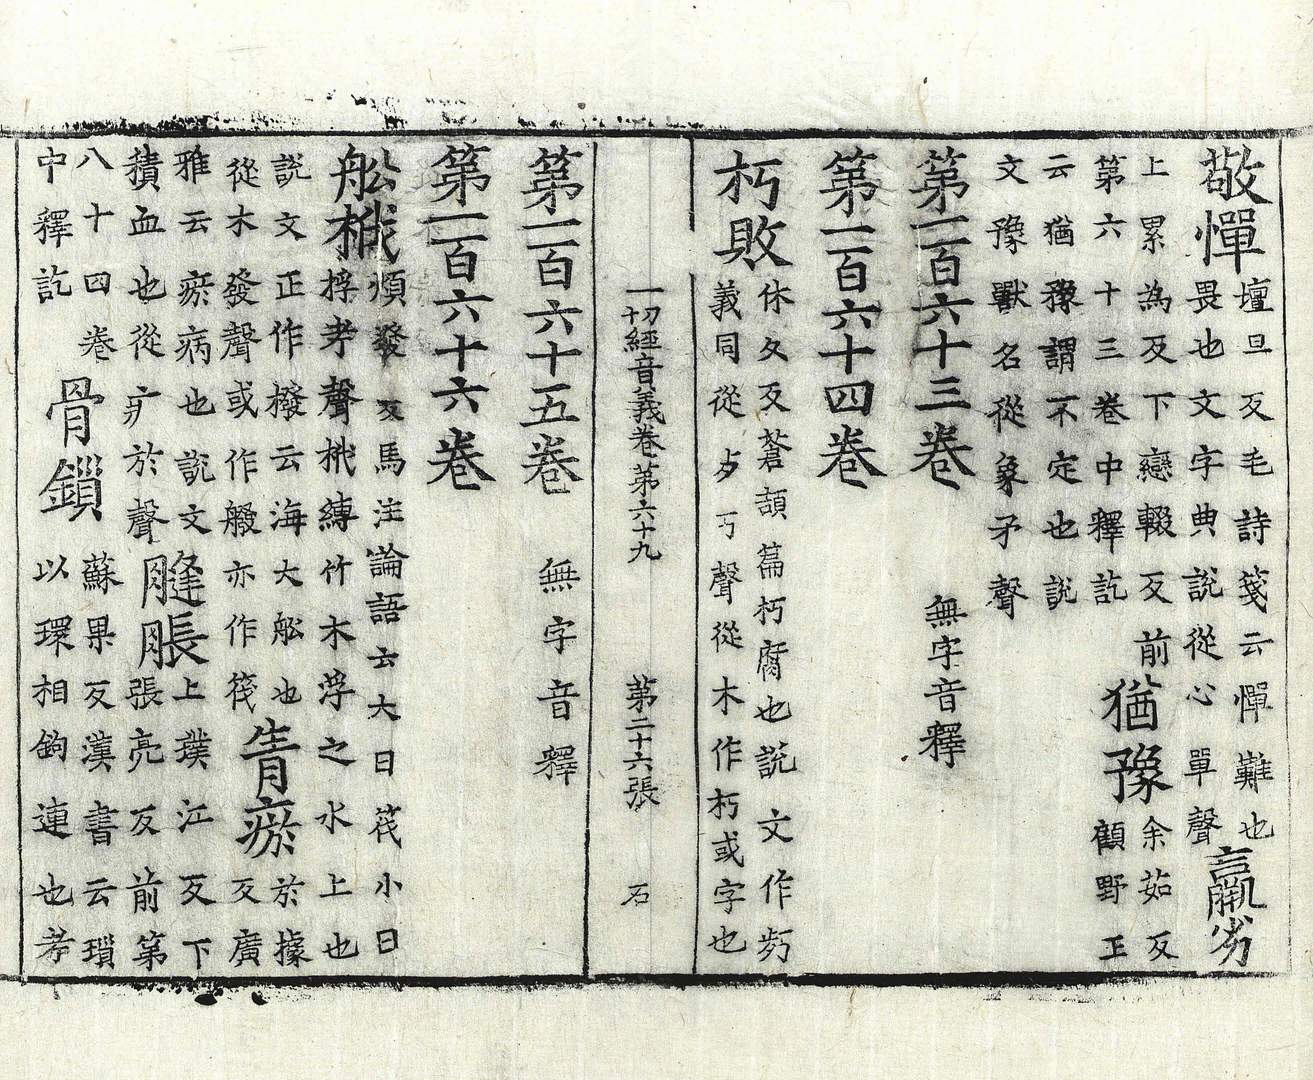 敬憚壇旦反毛詩箋云憚難也
畏也文字典說從心單聲羸劣
上累為反下戀輟反前猶豫余茹反
第六十三卷中釋訖顧野王
云猶豫謂不定也說
文豫獸名從象矛聲
第一百六十三卷 無字音釋
第一百六十四卷
朽敗休久反蒼頡篇朽腐也說文作㱙
義同從歺丂聲從木作朽或字也
一切經音義卷第六十九 第二十六張 石
第一百六十五卷 無字音釋
第一百六十六卷
舩橃煩發反馬注論語云大曰筏小曰
桴孝聲橃縛竹木浮之水上也
說文正作撥云海大舩也
從木發聲或作艐亦作筏青瘀於據
反廣
雅云瘀病也說文
積血也從疒於聲膖脹上璞江反下
張亮反前第
八十四卷
中釋訖骨鎖蘇果反漢書云瑣
以環相鉤連也考